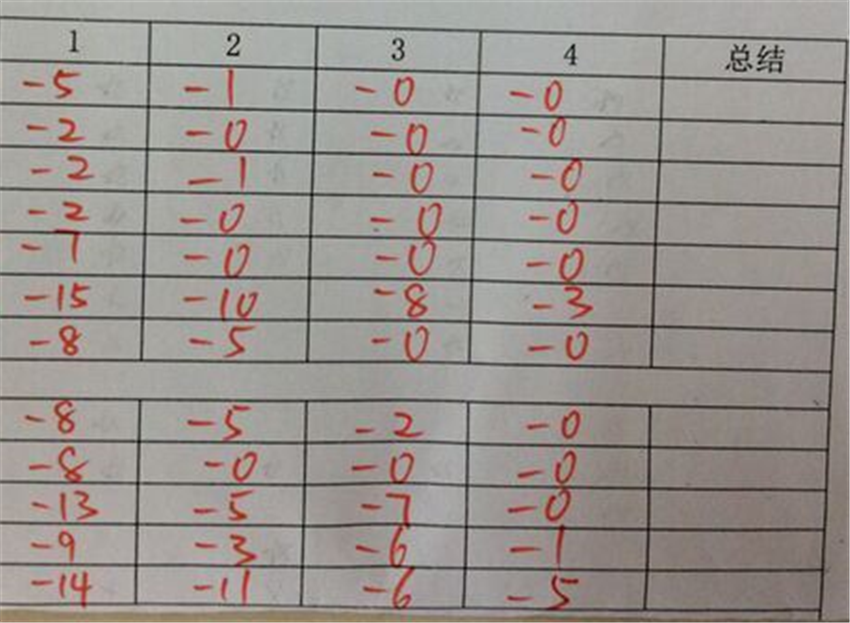 1 2 3 4 总结
-5 -1 -0 -0
-2 -0 -0 -0
-2 -1 -0 -0
-2 -0 -0 -0
-7 -0 -0 -0
-15 -10 -8 -3
-8 -5 -0 -0
-8 -5 -2 -0
-8 -0 -0 -0
-13 -5 -7 -0
-9 -3 -6 -1
-14 -11 -6 -5